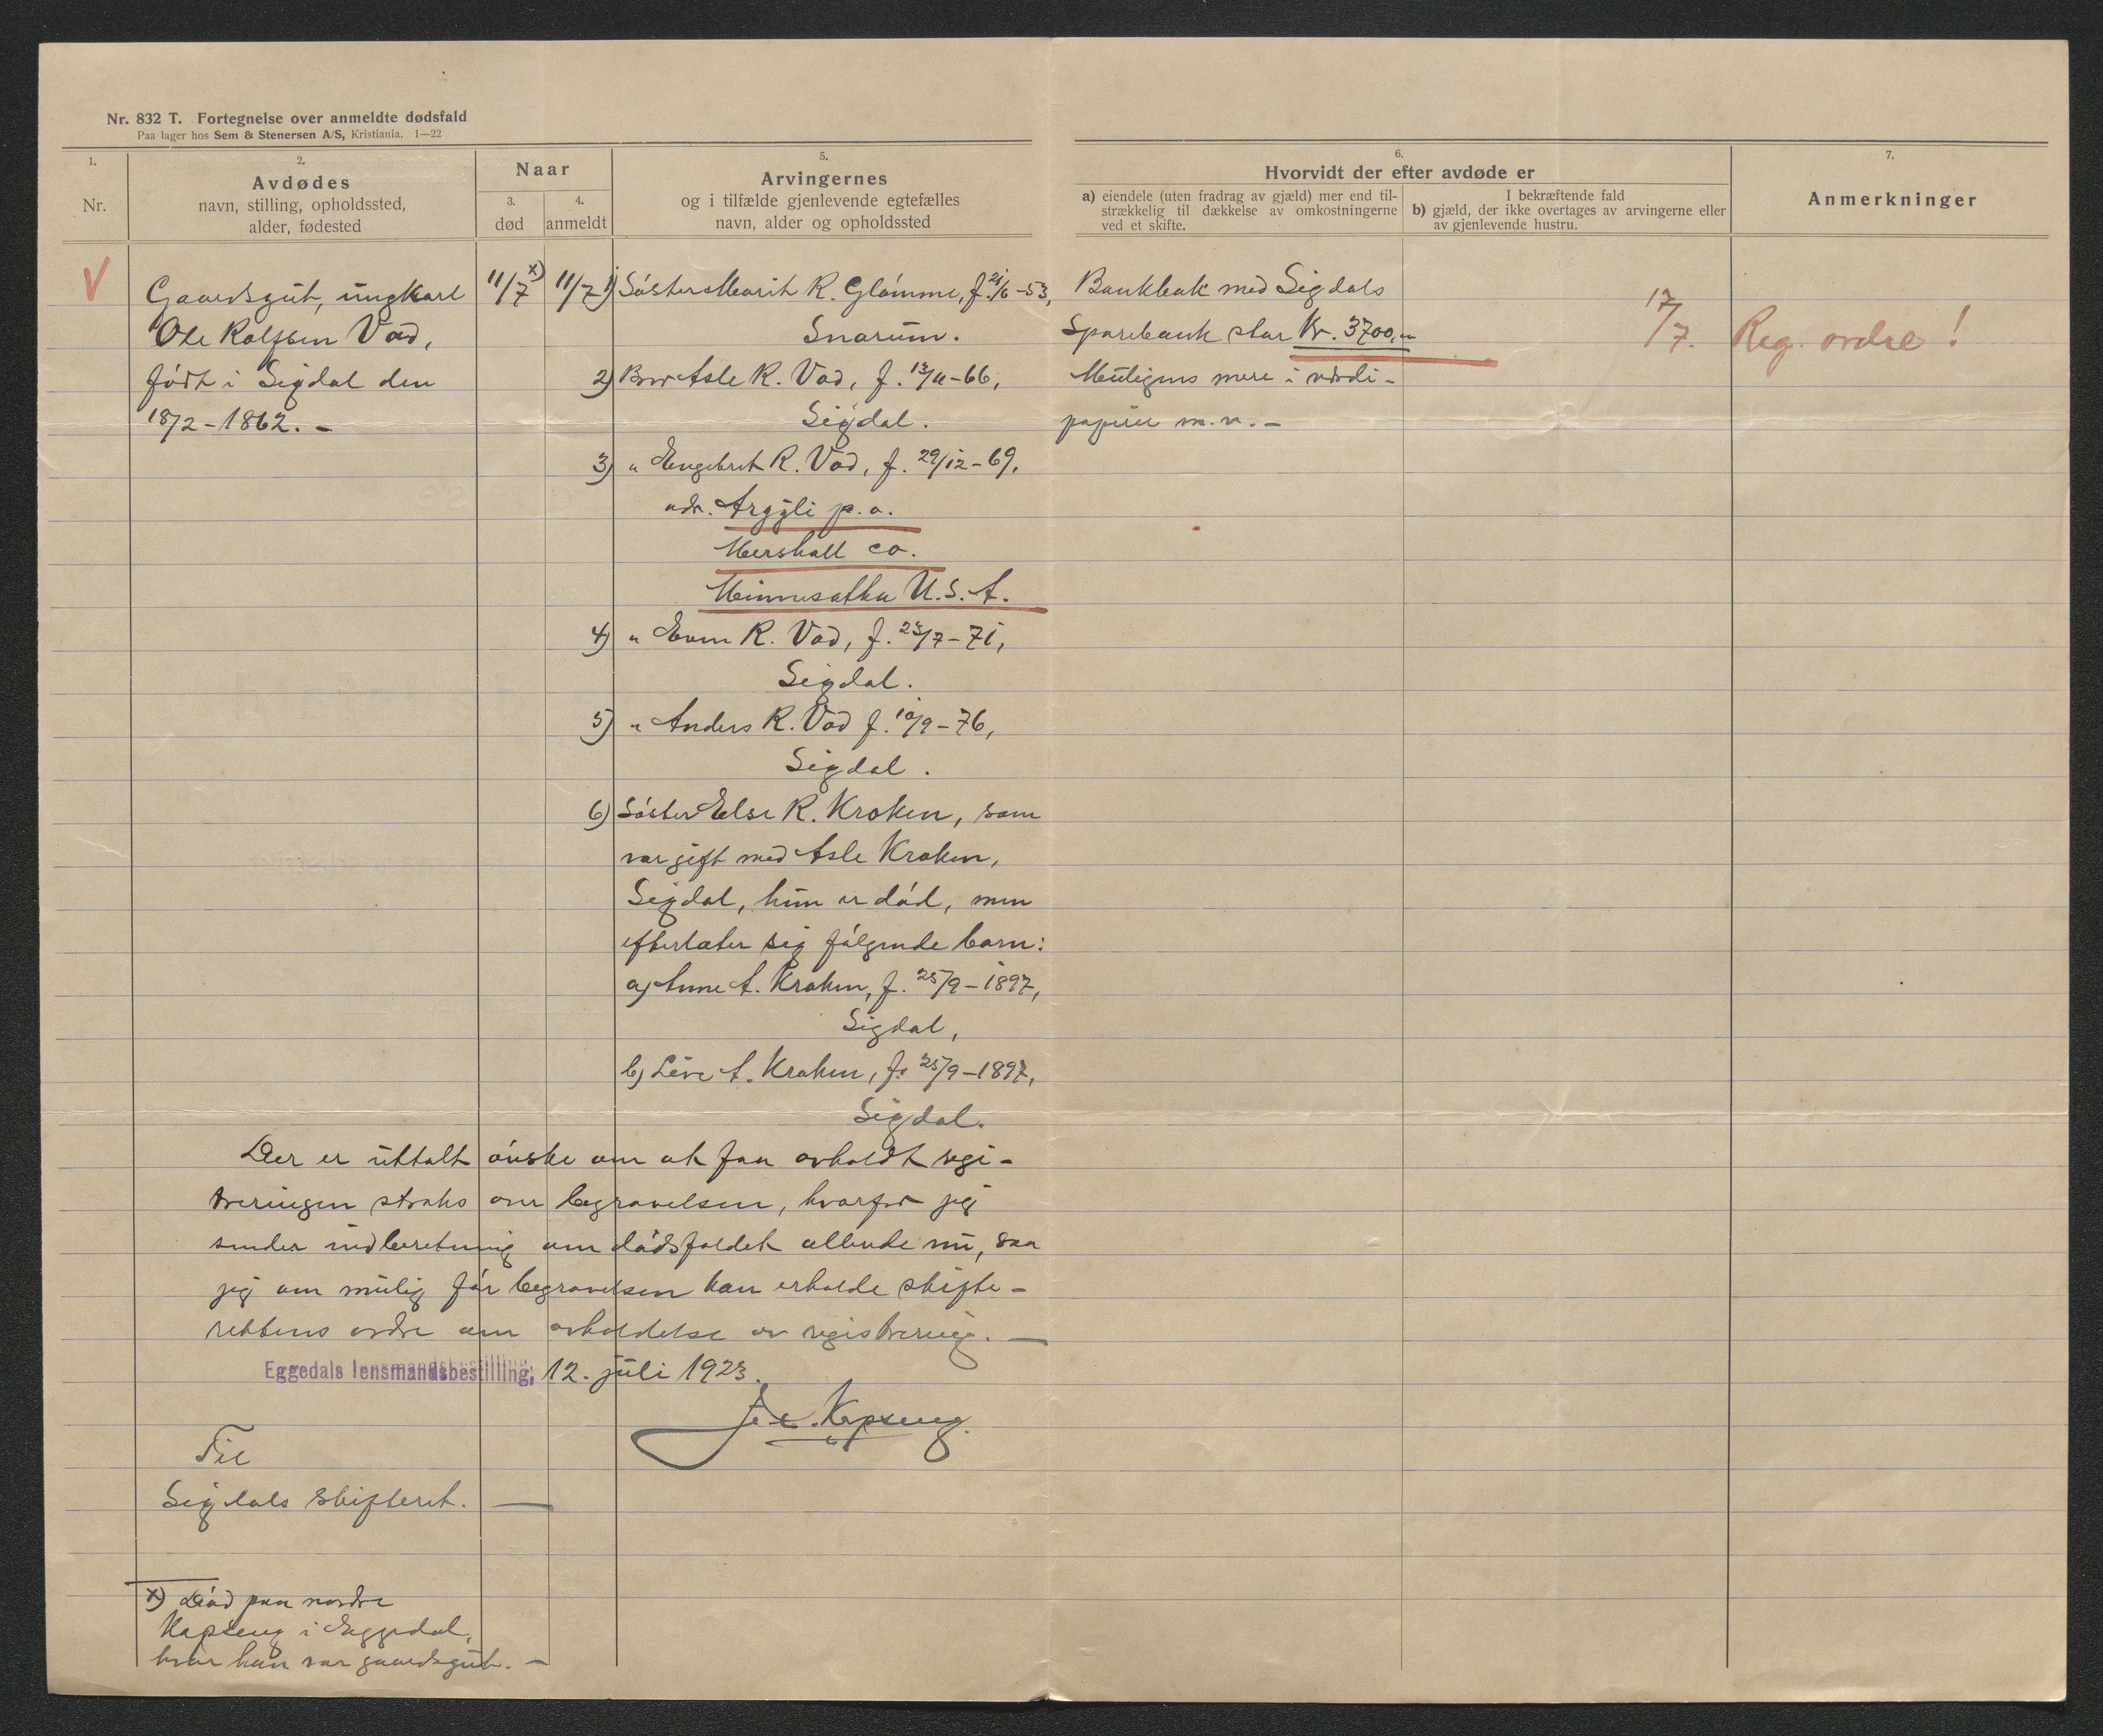 Nr. 832 T. Fortegnelse over anmeldte dødsfald
Paa lager hos Sem & Stenersen A/S, Kristiania. 1—22
1.
Nr.
2.
Avdødes
navn, stilling, opholdssted,
alder, fødested
Naar
3.
død
4.
anmeldt
5.
Arvingernes
og i tilfælde gjenlevende egtefælles
navn, alder og opholdssted
6.
Hvorvidt der efter avdøde er
a) eiendele (uten fradrag av gjæld) mer end til-
strækkelig til dækkelse av omkostningerne
ved et skifte.
I bekræftende fald
b) gjæld, der ikke overtages av arvingerne eller
av gjenlevende hustru.
7.
Anmerkninger
V
Gaardsgut, ungkarl
Ole Rolfsen Vad,
født i Sigdal den
18/2 - 1862. -
11/7 x)
11/7
1) Søster Marit R. Glømme, f. 21/6 - 53,
Snarum.
2) Bror Asle R. Vad, f. 13/11 - 66,
Sigdal.
3) " Engebret R. Vad, f. 29/12 - 69,
adr. Argyli p.o.
Mershall co.
Minnesotha U.S.A.
4) " Even R. Vad, f. 23/7 - 71,
Sigdal.
5) " Anders R. Vad f. 10/9 - 76,
Sigdal.
6) Søster Else R. Kroken, som
var gift med Asle Kroken,
Sigdal, hun er død, men
efterlater sig følgende barn:
a) Anne A. Kroken, f. 25/9 - 1897,
Sigdal,
b) Live A. Kroken, f. 25/9 - 1897,
Sigdal.
Bankbok med Sigdals
Sparebank stor Kr. 3700,"
Muligens mere i værdi-
papirer m.v. -
17/7. Reg. ordre!
Der er uttalt ønske om at faa avholdt regi-
streringen straks over begravelsen, hvorfor jeg
sender indberetning om dødsfaldet allerede nu, saa
jeg om mulig før begravelsen kan erholde skifte-
rettens ordre om avholdelse av registrering. -
Eggedals lensmandsbestilling, 12. juli 1923.
Kopseng.
Til
Sigdals skifteret. -
x) Død paa nordre
Kopseng i Eggedal,
hvor han var gaardsgut. -